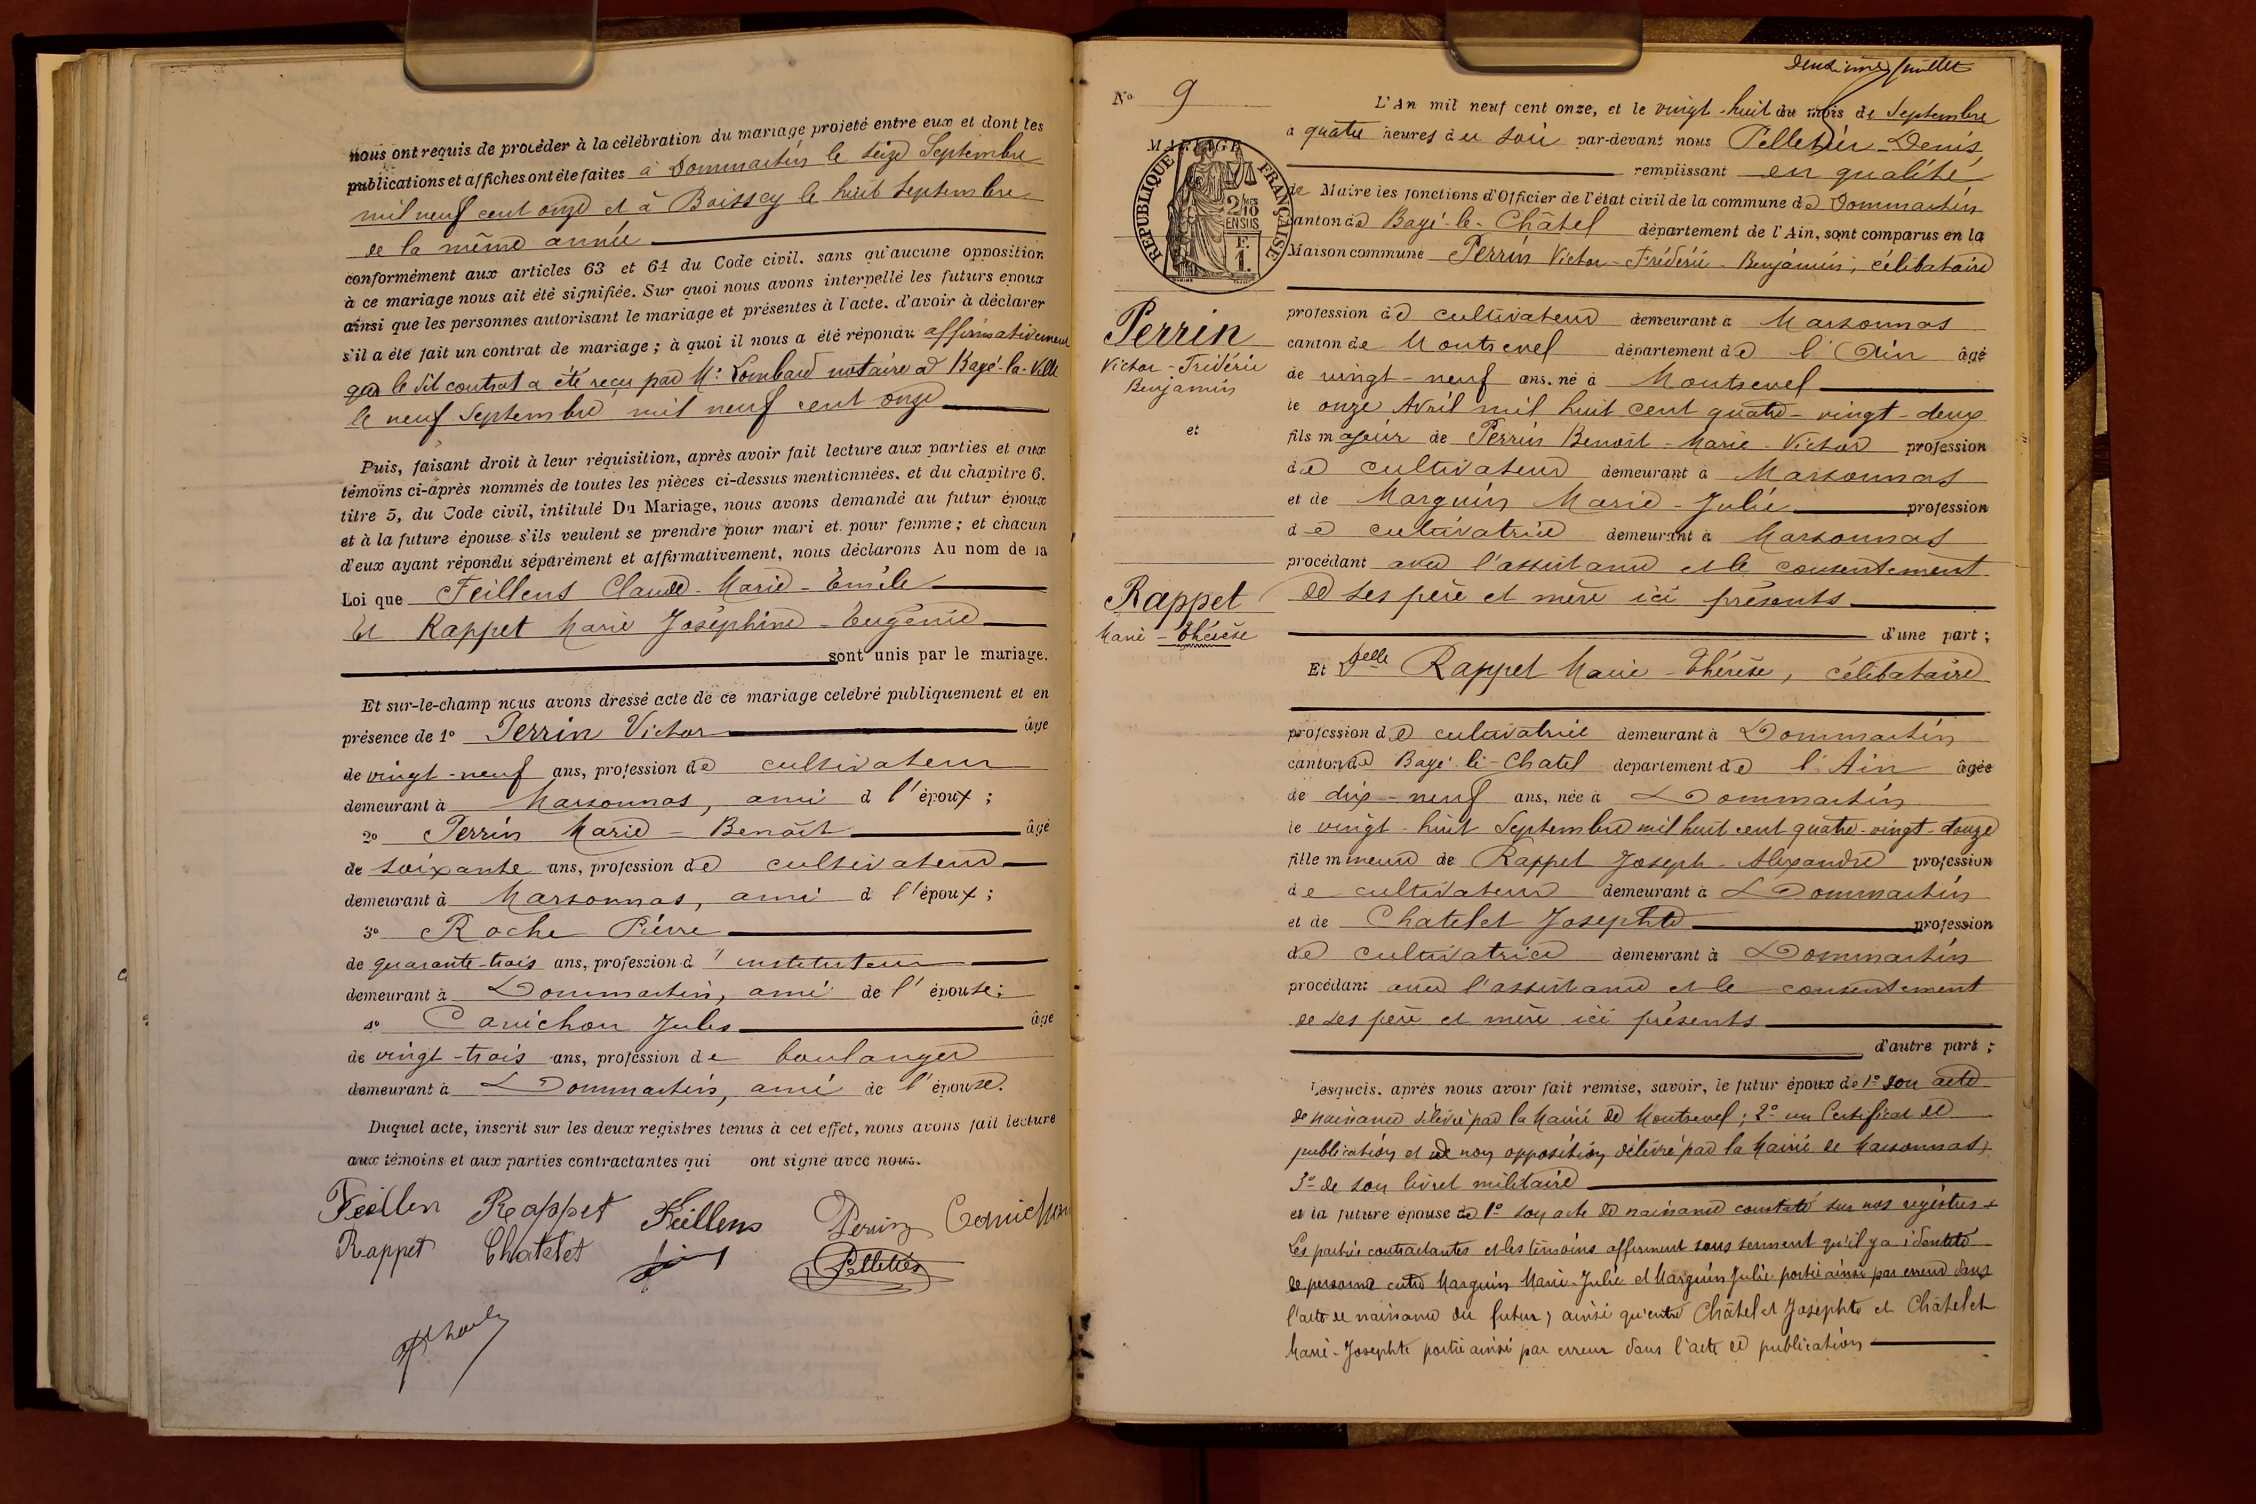 nous ont requis de procéder à la célébration du mariage projeté entre eux et dont les
publications et affiches ont été faites à Dommartin le seize Septembre
mil neuf cent onze et à Boissey le huit Septembre
de la même année
conformément aux articles 63 et 64 du Code civil. sans qu'aucune opposition
à ce mariage nous ait été signifiée. Sur quoi nous avons interpellé les futurs epoux
ainsi que les personnes autorisant le mariage et présentes à l'acte. d'avoir à déclarer
s'il a été fait un contrat de mariage ; à quoi il nous a été répondu affirmativement
que le dit contrat a été reçu par Me Lombard notaire à Bagé-la-Ville
le neuf Septembre mil neuf cent onze
Puis, faisant droit à leur réquisition, après avoir fait lecture aux parties et aux
témoins ci-après nommés de toutes les pièces ci-dessus mentionnées. et du chapitre 6.
titre 5, du Code civil, intitulé Du Mariage, nous avons demandé au futur époux
et à la future épouse s'ils veulent se prendre pour mari et pour femme ; et chacun
d'eux ayant répondu séparément et affirmativement, nous déclarons Au nom de la
Loi que Feillens Claude-Marie-Emile
Et Rappet Marie Joséphine-Eugénie
sont unis par le mariage.
Et sur-le-champ nous avons dressé acte de ce mariage celebré publiquement et en
présence de 1º Perrin Victor âge
de vingt-neuf ans, profession de cultivateur
demeurant à Marsonnas, ami d l'époux ;
2º Perrin Marie-Benoît âgé
de soixante ans, profession de cultivateur
demeurant à Marsonnas, ami d l'époux ;
3º Roche Pierre
de quarante-trois ans, profession d'instituteur
demeurant à Dommartin, ami de l'épouse ;
4º Canichon Jules âge
de vingt-trois ans, profession de boulanger
demeurant à Dommartin, ami de l'épouse.
Duquel acte, inscrit sur les deux registres tenus à cet effet, nous avons fait lecture
aux témoins et aux parties contractantes qui ont signé avec nous.
Feillen Rappet Feillens Perrin Canichon
Rappet Chatelet Pelletier
deuxième feuillet
Nº 9
MARIAGE
RÉPUBLIQUE FRANÇAISE
2/10 EN SUS
F. 1.
Perrin
Victor-Frédéric
Benjamin
et
Rappet
Marie-Thérèse
L'An mil neuf cent onze, et le vingt-huit du mois de Septembre
à quatre heures du soir par-devant nous Pelletier-Denis
remplissant en qualité
de Maire les fonctions d'Officier de l'état civil de la commune de Dommartin
canton de Bagé-le-Châtel département de l'Ain, sont comparus en la
Maison commune Perrin Victor-Frédéric-Benjamin, célibataire
profession de cultivateur demeurant à Marsonnas
canton de Montrevel département de l'Ain âgé
de vingt-neuf ans. né à Montrevel
le onze Avril mil huit cent quatre-vingt-deux
fils majeur de Perrin Benoît-Marie-Victor profession
de cultivateur demeurant à Marsonnas
et de Marguin Marie-Julie profession
de cultivatrice demeurant à Marsonnas
procédant avec l'assistance et le consentement
de ses père et mère ici présents
d'une part ;
Et Delle Rappet Marie-Thérèse, célibataire
profession de cultivatrice demeurant à Dommartin
canton de Bagé-le-Chatel departement de l'Ain âgée
de dix-neuf ans, née à Dommartin
le vingt-huit Septembre mil huit cent quatre-vingt-douze
fille mineure de Rappet Joseph-Alexandre profession
de cultivateur demeurant à Dommartin
et de Chatelet Josephte profession
de cultivatrice demeurant à Dommartin
procédant avec l'assistance et le consentement
de ses père et mère ici présents
d'autre part ;
Lesquels. après nous avoir fait remise, savoir, le futur époux de 1º son acte
de naissance délivré par la Mairie de Montrevel ; 2º un Certificat de
publication et de non opposition délivré par la Mairie de Marsonnas ;
3º de son livret militaire
et la future épouse de 1º son acte de naissance constaté sur nos registres
Les parties contractantes et les témoins affirment sous serment qu'il y a identité
de personne entre Marguin Marie-Julie et Marguin Julie portée ainsi par erreur dans
l'acte de naissance du futur ; ainsi qu'entre Châtelet Josephte et Châtelet
Marie-Josephte portée ainsi par erreur dans l'acte de publication